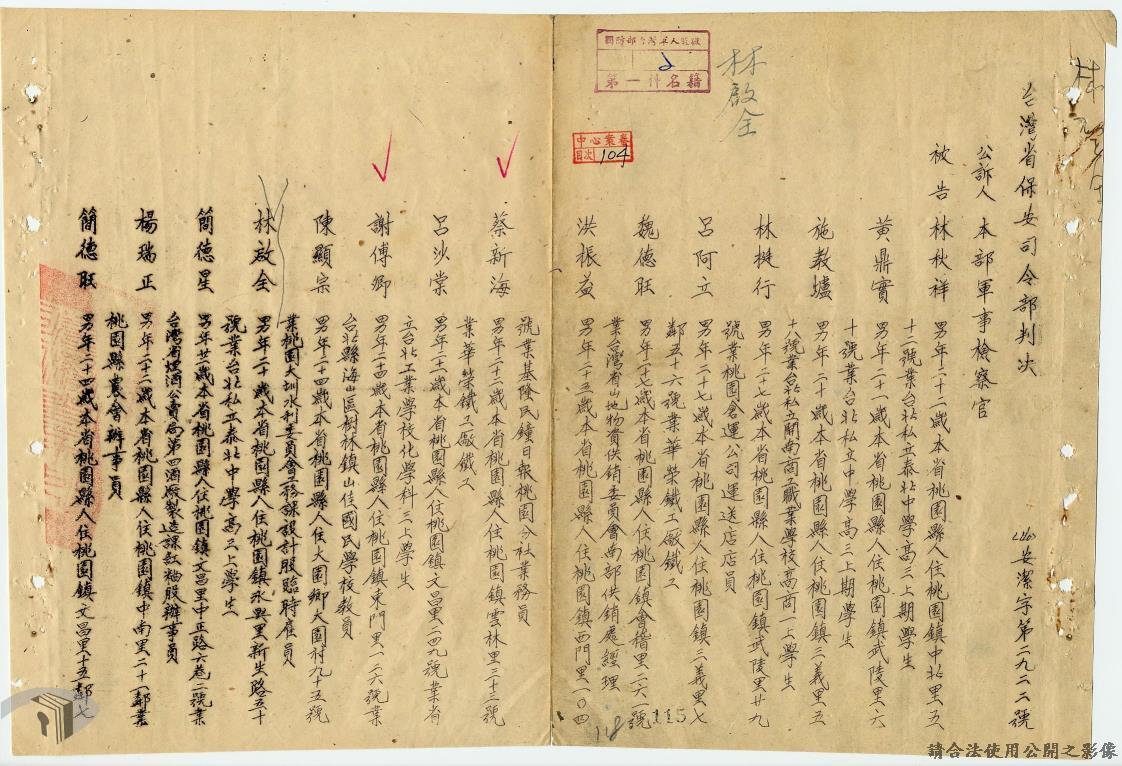 台灣省保安司令部判決
安潔字第二九二二號
公訴人 本部軍事檢察官
被告 林秋祥 男年二十二歲本省桃園縣人住桃園鎮中北里五
十二號業台北私立泰北中學高三上期學生
黃鼎實 男年二十一歲本省桃園縣人住桃園鎮武陵里六
十號業台北私立中學高三上期學生
施教爐 男年二十歲本省桃園縣人住桃園鎮三義里五
十八號業台北私立開南商工職業學校高商一上學生
林挺行 男年二十七歲本省桃園縣人住桃園鎮武陵里廿九
號業桃園倉運公司運送店店員
呂阿立 男年二十七歲本省桃園縣人住桃園鎮三義里七
鄰五十六號業華榮鐵工廠鐵工
魏德旺 男年二十七歲本省桃園縣人住桃園鎮會稽里二六一號
業台灣省山地物資供銷委員會南部供銷處經理
洪振益 男年二十五歲本省桃園縣人住桃園鎮西門里一〇四
號業基隆民鐘日報桃園分社業務員
蔡新海 男年二十二歲本省桃園縣人住桃園鎮雲林里三十三號
業華榮鐵工廠鐵工
呂沙棠 男年二十一歲本省桃園縣人住桃園鎮文昌里二四九號業省
立台北工業學校化學科三上學生
謝傅卿 男年二十四歲本省桃園縣人住桃園鎮東門里一二六號業
台北縣海山區樹林鎮山佳國民學校教員
陳顯宗 男年二十四歲本省桃園縣人住大園鄉大園村九十五號
業桃園大圳水利委員會工務課設計股臨時雇員
林啟全 男年二十歲本省桃園縣人住桃園鎮永興里新生路五十
號業台北私立泰北中學高三上學生
簡德星 男年廿一歲本省桃園縣人住桃園鎮文昌里中正路六巷二號業
台灣省煙酒公賣局第四酒廠製造課紅粬股辦事員
楊瑞正 男年二十二歲本省桃園縣人住桃園鎮中南里二十一鄰業
桃園縣農會辦事員
簡德旺 男年二十四歲本省桃園縣人住桃園鎮文昌里十五鄰七
林啟全
第一件名籍
中心業卷
目次 104
115
18
請合法使用公開之影像